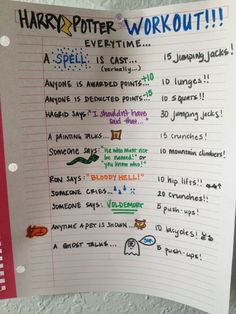 HARRY POTTER WORKOUT!!!
EVERYTIME...
A SPELL IS CAST... 15 jumping jacks!
(verbally...)
ANYONE IS AWARDED POINTS... +10 10 lunges!!
ANYONE IS DEDUCTED POINTS... -15 10 squats!!
HAGRID SAYS "I shouldn't have said that..." 30 jumping jacks!
A PAINTING TALKS... 15 crunches!
Someone says: "He who must not be named!" or "you know who"! 10 mountain climbers!
RON SAYS: "BLOODY HELL!" 10 hip lifts!!
SOMEONE CRIES... 20 crunches!
SOMEONE SAYS: VOLDEMORT 5 push-ups!
ANYTIME A PET IS SHOWN... 10 bicycles!
A GHOST TALKS... 5 push-ups!